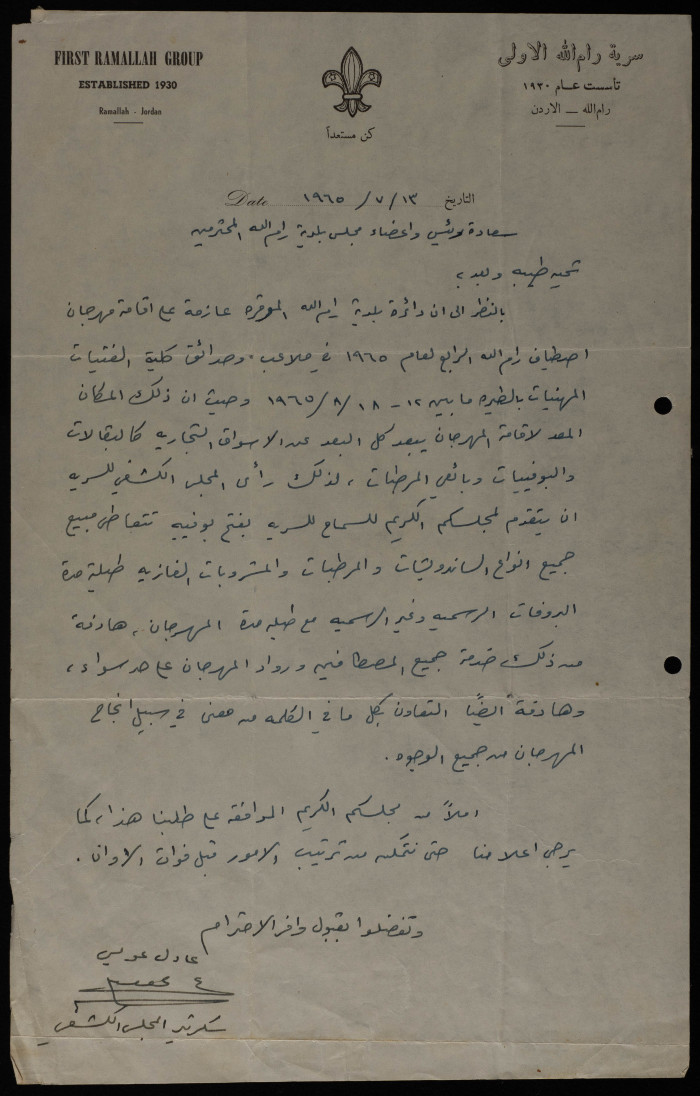 FIRST RAMALLAH GROUP
ESTABLISHED 1930
Ramallah - Jordan
سرية رام الله الاولى
تأسست عام ١٩٣٠
رام الله — الاردن
كن مستعداً
Date ١٩٦٥ / ٧ / ١٣ التاريخ
سعادة رئيس واعضاء مجلس بلدية رام الله المحترمين
تحيه طيبه وبعد ،
بالنظر الى ان دائرة بلدية رام الله الموقره عازمة على اقامة مهرجان
اصطياف رام الله الرابع لعام ١٩٦٥ في ملاعب وحدائق كلية الفتيات
المهنيات بالطيره ما بين ١٢ - ١٨ / ٨ / ١٩٦٥ وحيث ان ذلك المكان
المعد لاقامة المهرجان يبعد كل البعد عن الاسواق التجاريه كالبقالات
والبوفييات وبائعي المرطبات ، لذلك رأى المجلس الكشفي للسريه
ان يتقدم لمجلسكم الكريم للسماح للسريه بفتح بوفيه تتعاطى مبيع
جميع انواع الساندويشات والمرطبات والمشروبات الغازيه طيلة مدة
البروفات الرسميه وغير الرسميه مع طيلة مدة المهرجان ، هادفة
من ذلك خدمة جميع المصطافين ورواد المهرجان على حد سواء ،
وهادفة ايضًا التعاون بكل ما في الكلمه من معنى في سبيل انجاح
المهرجان من جميع الوجوه .
املاً من مجلسكم الكريم الموافقه على طلبنا هذا ، كما
يرجى اعلامنا حتى نتمكن من ترتيب الامور قبل فوات الاوان .
وتفضلوا بقبول وافر الاحترام
عادل عويس
سكرتير المجلس الكشفي